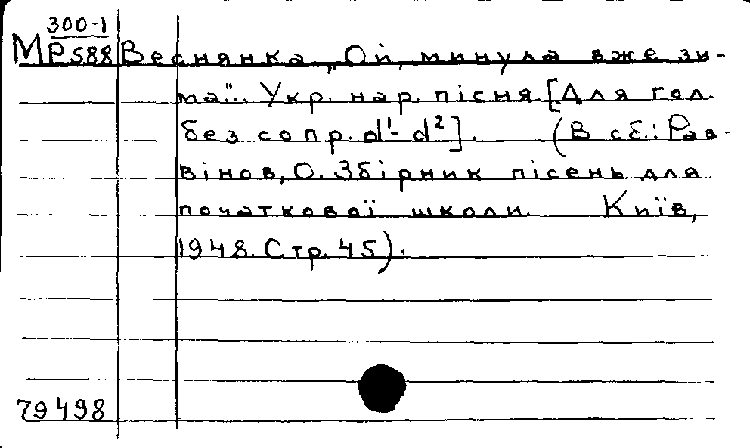 300-1
М Р588 Веснянка „Ой, минула вже зи-
ма". Укр. нар. пісня [Для гол.
без сопр. d¹- d²]. (В сб.: Рав-
вінов, О. Збірник пісень для
початкової школи. Київ,
1948. Стр. 45).
79498